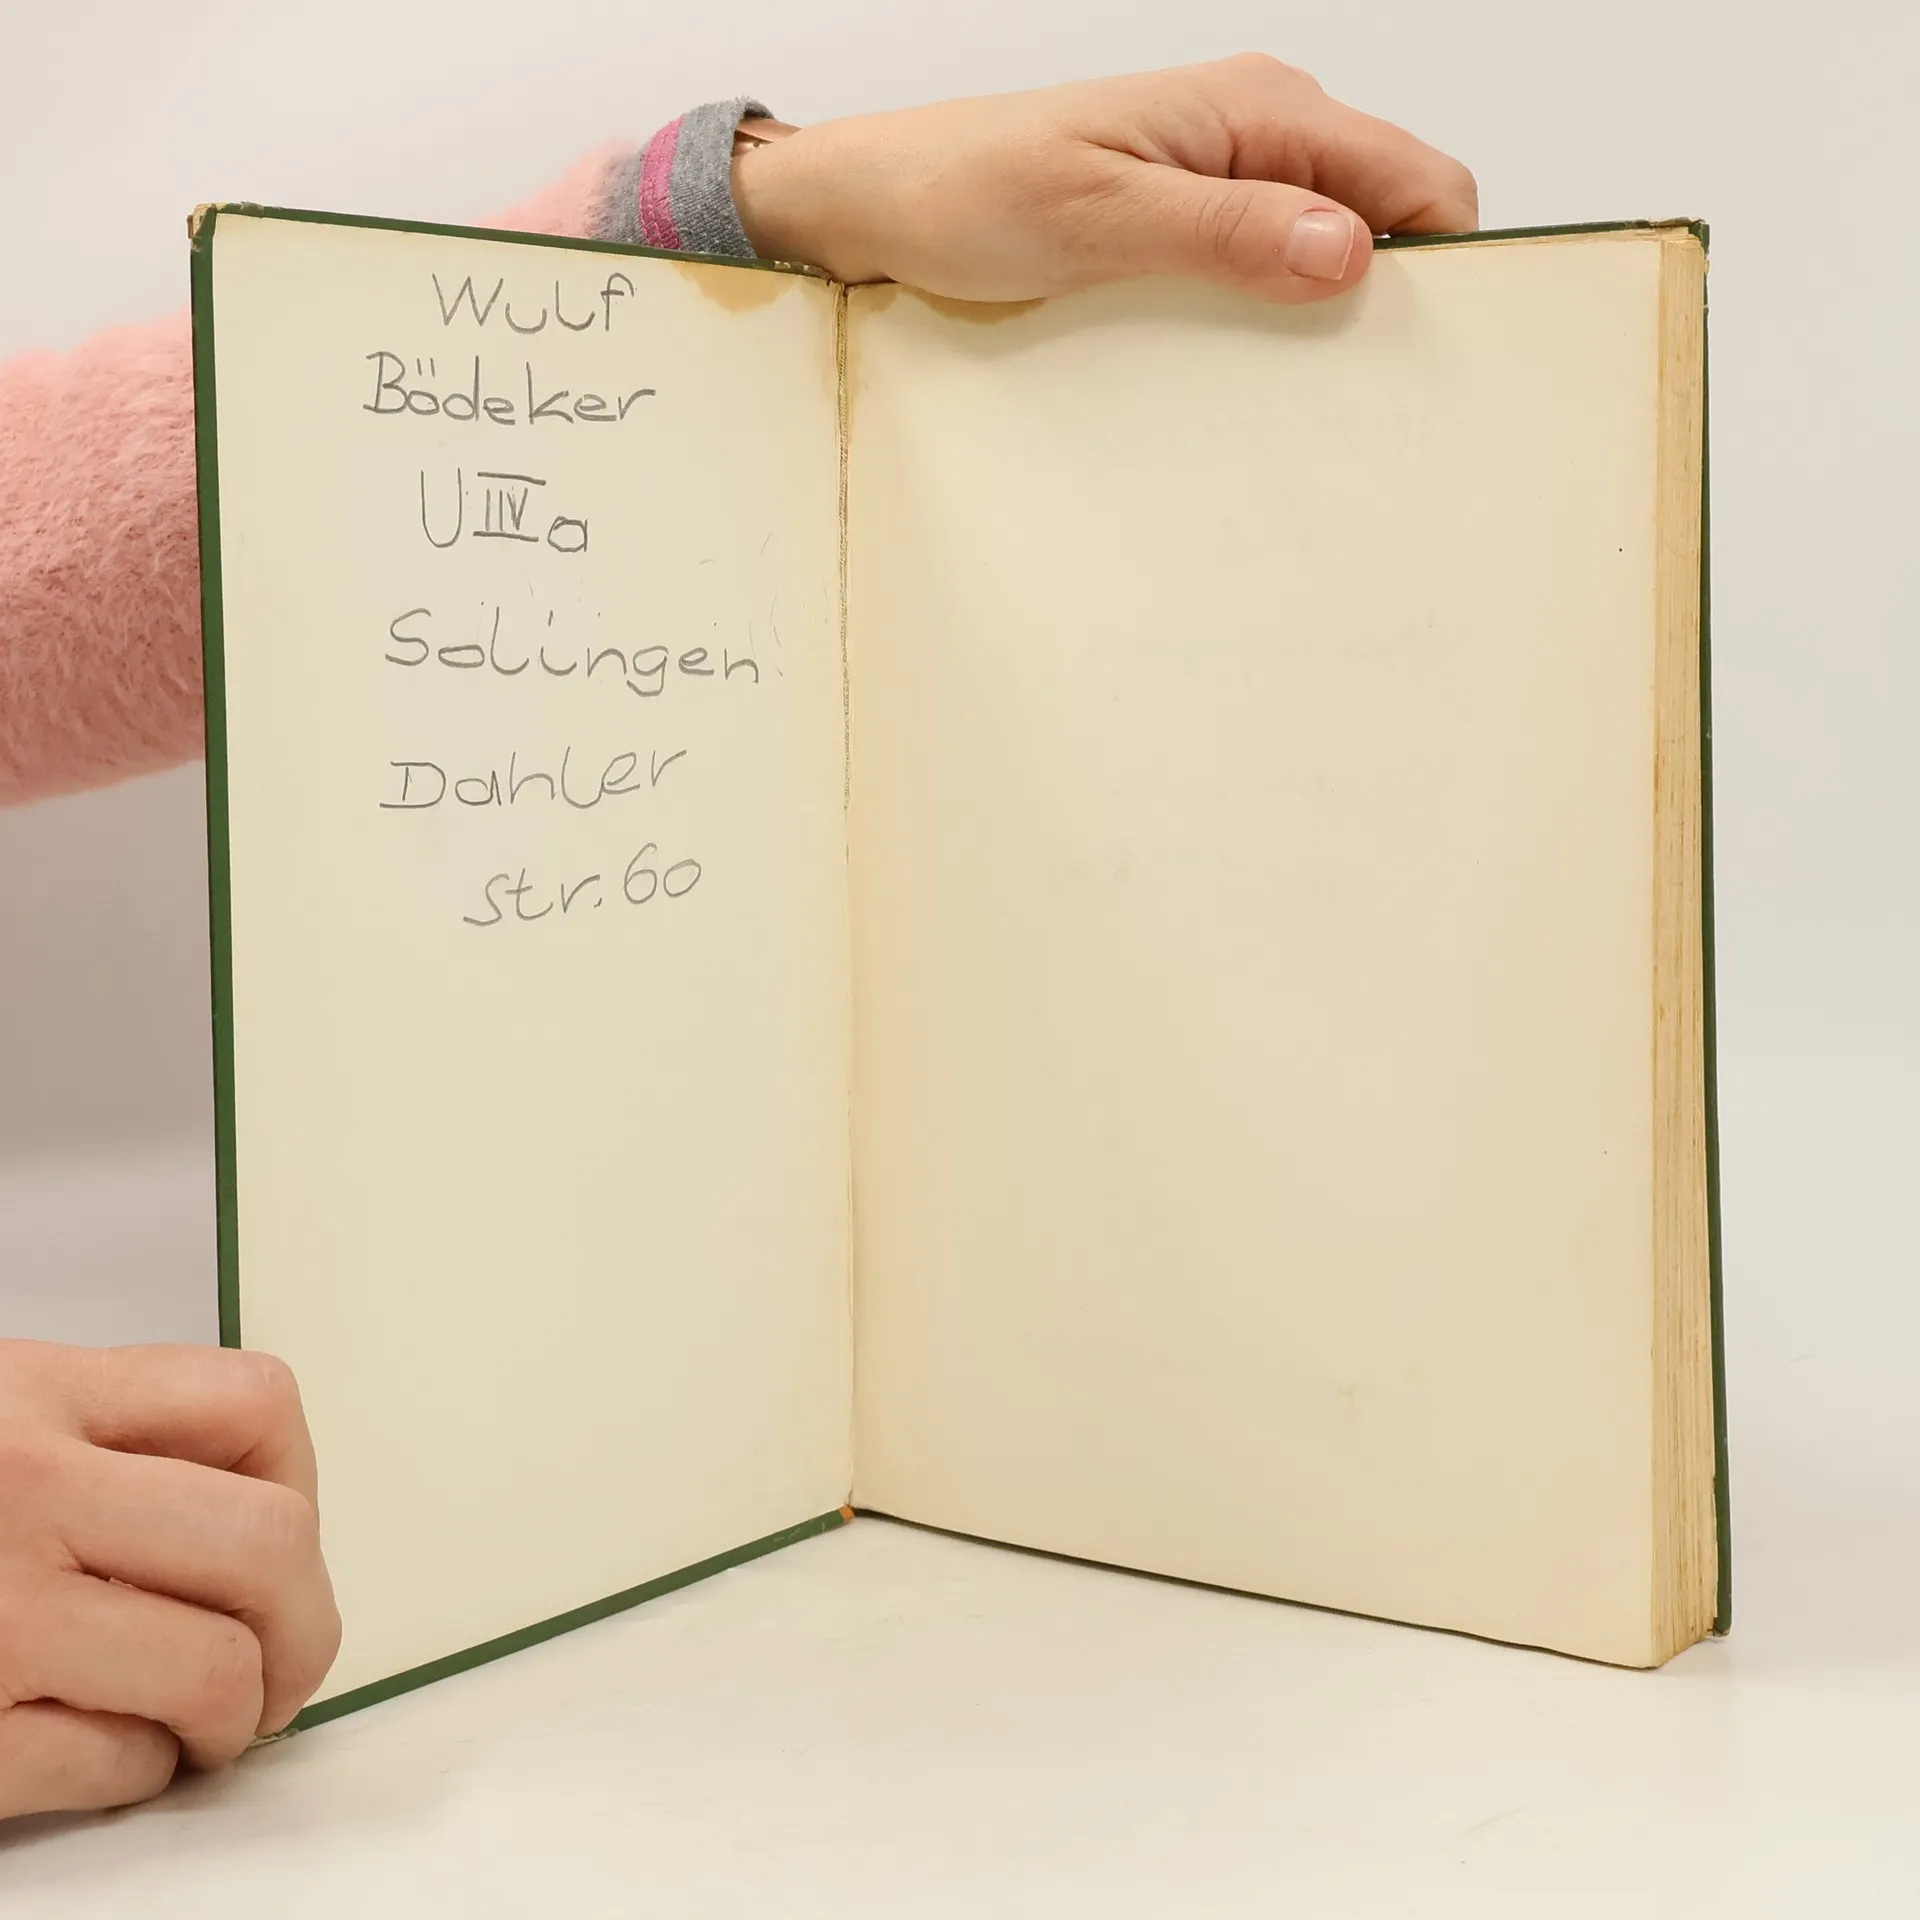 Wulf
Bödeker
U IV a
Solingen
Dahler
str. 60